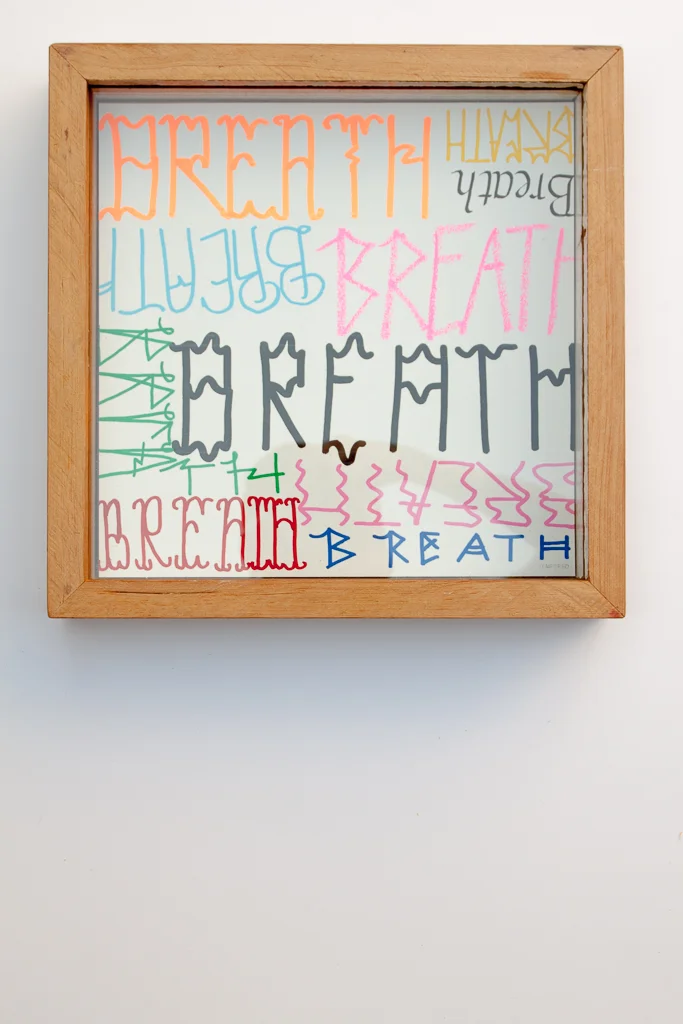 BREATH
BREATH
Breath
BREATH
BREATH
BREATH
BREATH
BREATH
BREATH
BREATH